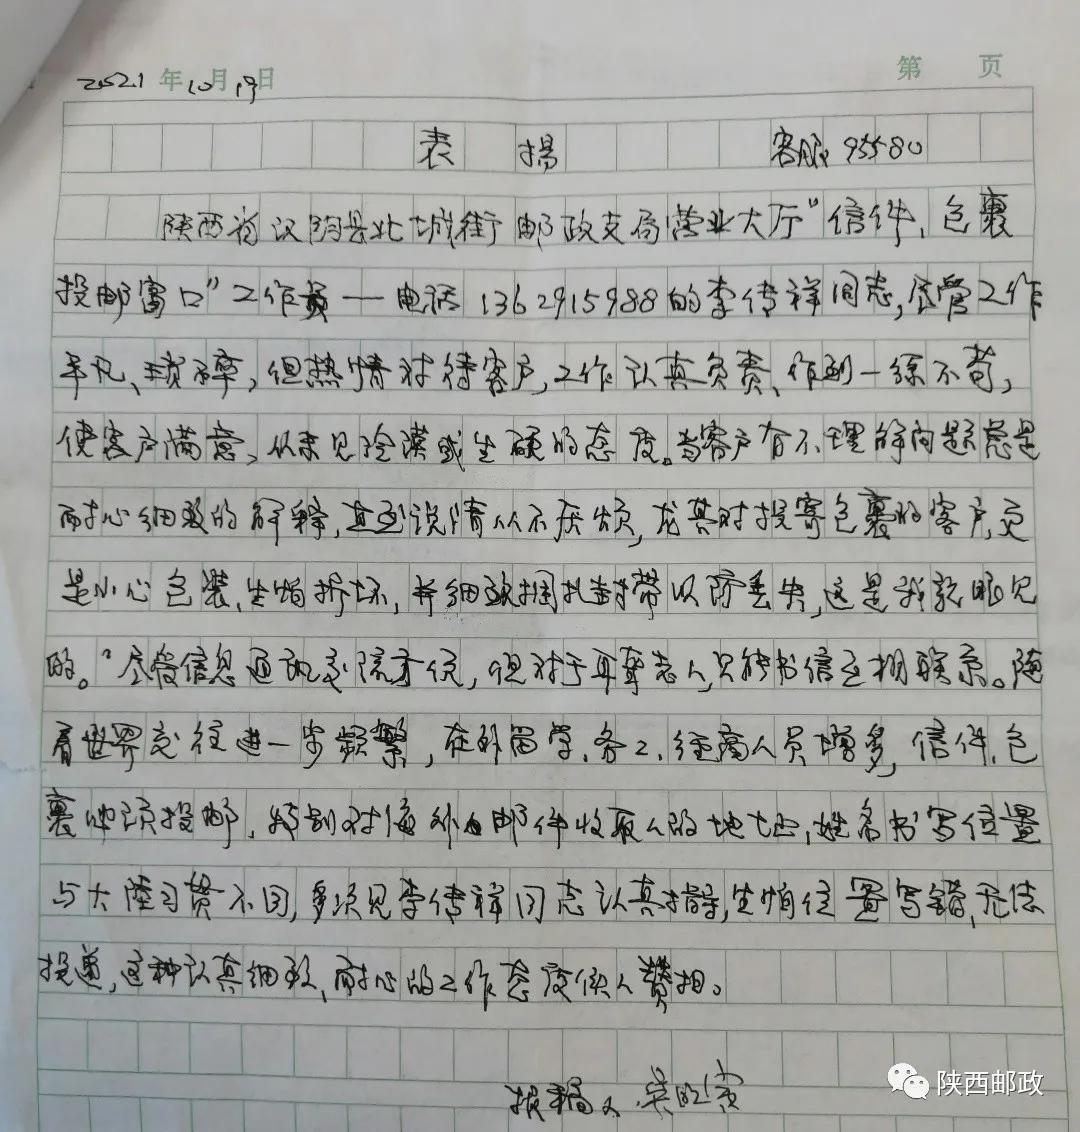 2021年10月19日 第 页
表 扬 客服95580
陕西省汉阴县北城街邮政支局营业大厅"信件、包裹
投邮窗口"工作员——电话1362915988的李传祥同志,尽管工作
平凡、琐碎,但热情对待客户,工作认真负责、作到一丝不苟,
使客户满意,从未见冷漠或生硬的态度。当客户有不理解问题总是
耐心细致的解释,直到说清从不厌烦,尤其对投寄包裹的客户,更
是小心包装,生怕损坏,并细致捆扎封带以防丢失,这是我亲眼见
的。"尽管信息通讯交流方便,但对于耳聋老人,只能书信互相联系。随
着世界交往进一步频繁,在外留学、务工、经商人员增多,信件、包
裹必须投邮,特别对海外邮件收取人的地址,姓名书写位置
与大陆习惯不同,多次见李传祥同志认真指导,生怕位置写错,无法
投递,这种认真细致、耐心的工作态度使人赞扬。
投稿人
陕西邮政